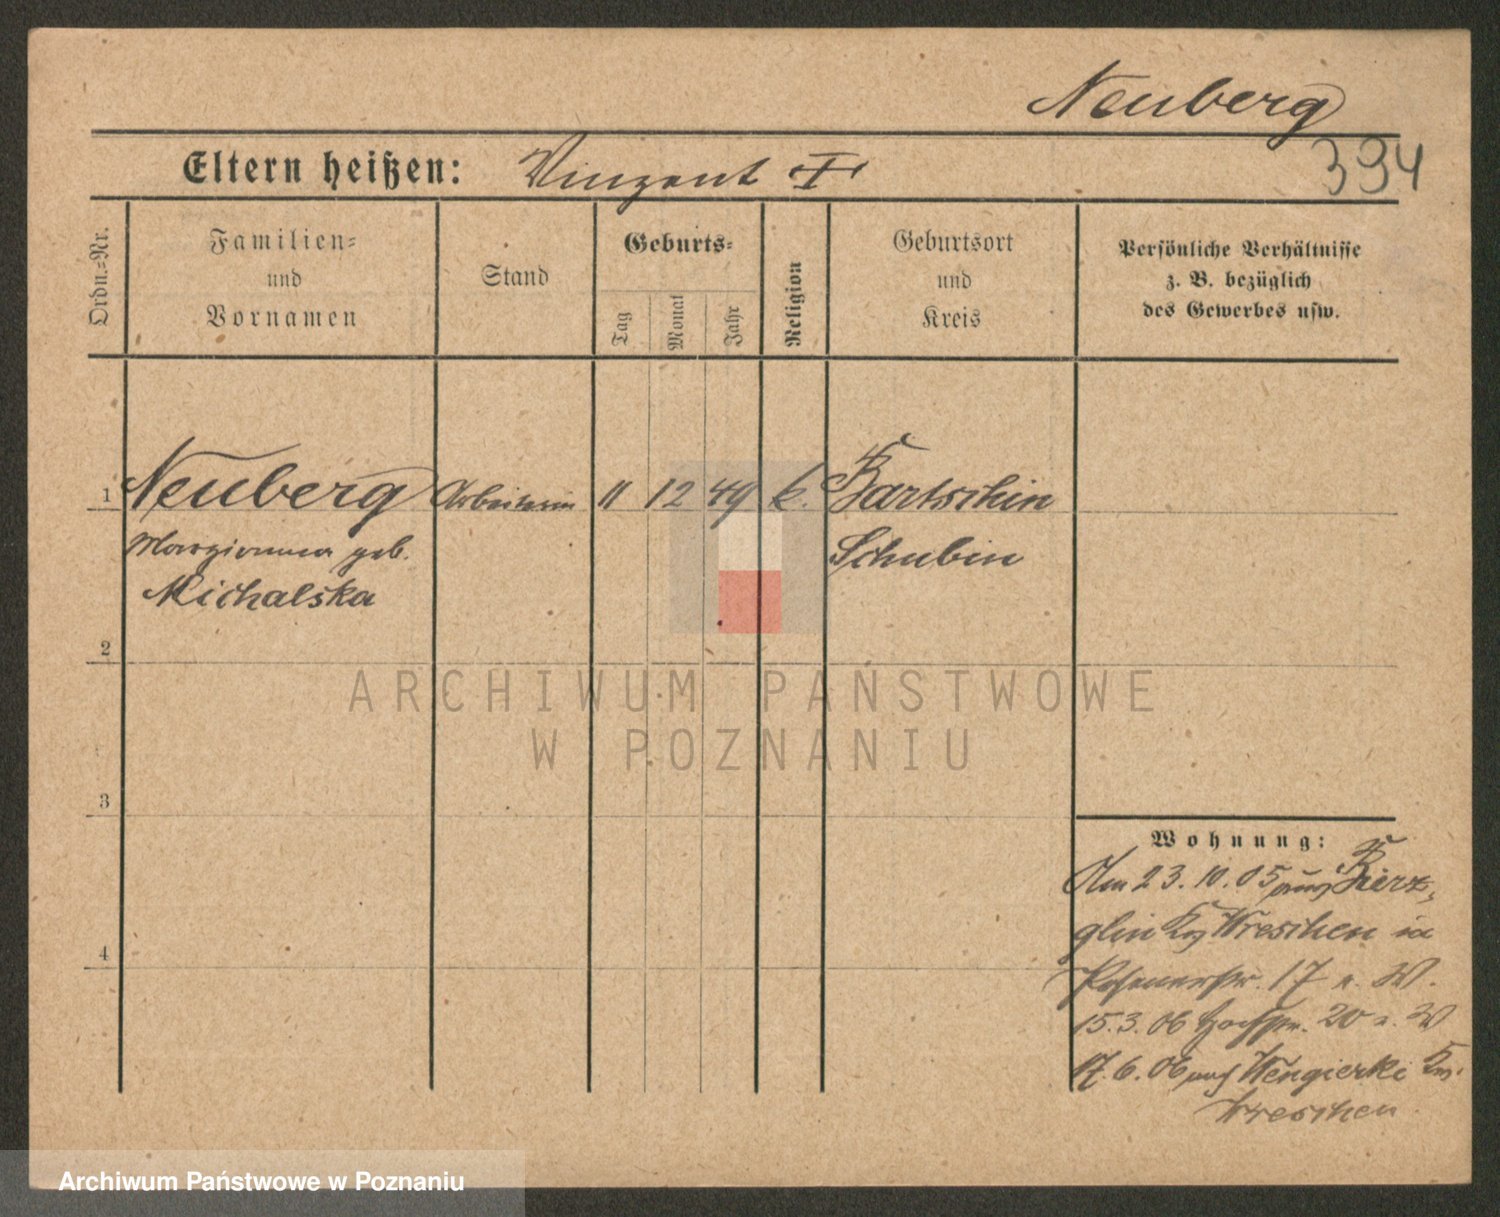 Neuberg
394
Eltern heißen: Vinzent
Ordn.-Nr.
Familien-
und
Vornamen
Stand
Geburts-
Tag
Monat
Jahr
Religion
Geburtsort
und
Kreis
Persönliche Verhältnisse
z. B. bezüglich
des Gewerbes usw.
1 Neuberg Arbeiterin 11 12 49 k. Bartschin
Marzianna geb. Schubin
Michalska
2
ARCHIWUM PAŃSTWOWE
W POZNANIU
3
Wohnung:
Am 23.10.05 aus Bierz-
glin Krs Wreschen in
Posenerstr. 17 b. W.
15.3.06 20 b. W
17.6.06 nach Wengierki Krs.
Wreschen
4
Archiwum Państwowe w Poznaniu